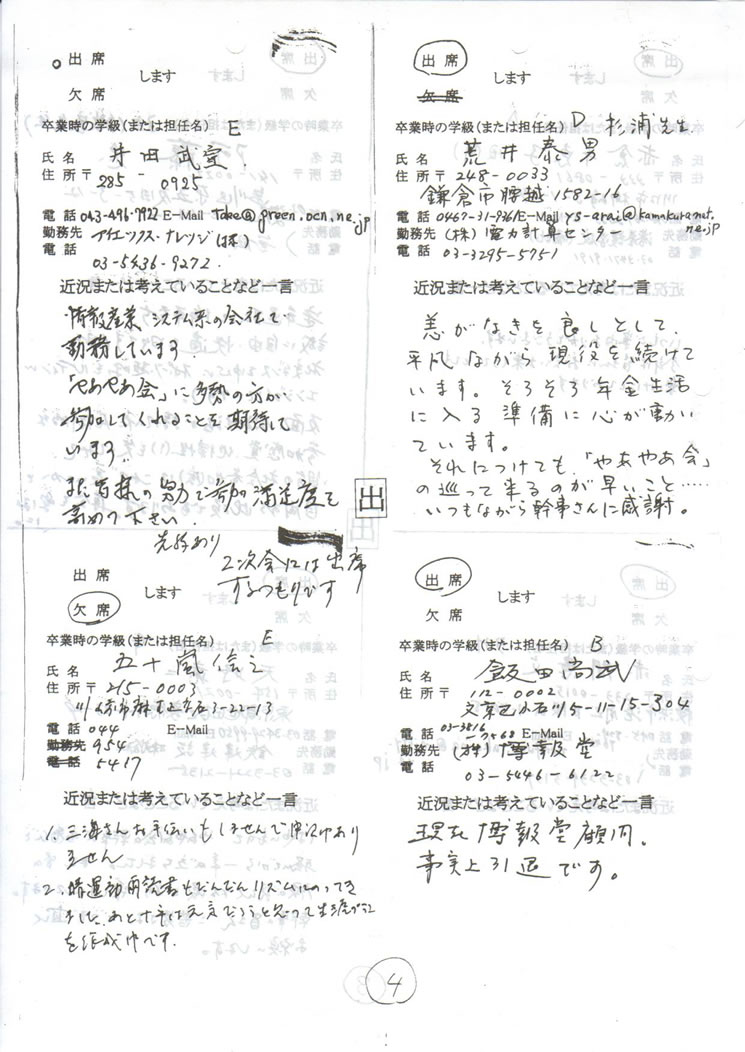 出席
します
欠席
卒業時の学級(または担任名) E
氏名 井田武
住所〒 285-0925
電話 043-496-7992 E-Mail take@green.ocn.ne.jp
勤務先 アイエックス・ナレッジ(株)
電話 03-5436-9272
近況または考えていることなど一言
情報産業、システム系の会社で
勤務しています。
「やあやあ会」に多勢の方が
参加してくれることを期待して
います。
高めて下さい。
出席
します
欠席
卒業時の学級(または担任名) D 杉浦先生
氏名 荒井泰男
住所〒 248-0033
鎌倉市腰越1582-16
電話 0467-31-9361 E-Mail ys-arai@kamakuranet.ne.jp
勤務先 (株)電力計算センター
電話 03-3295-5751
近況または考えていることなど一言
恙がなきを良しとして、
平凡ながら現役を続けて
います。そろそろ年金生活
に入る準備に心が動い
ています。
それにつけても、「やあやあ会」
の巡って来るのが早いこと……
いつもながら幹事さんに感謝。
出
2次会には出席
するつもりです
出席
します
欠席
卒業時の学級(または担任名) E
氏名 五十嵐信之
住所〒 215-0003
川崎市麻生区高石3-22-13
電話 044 E-Mail
勤務先 954
電話 5417
近況または考えていることなど一言
1. 三海さんお手伝いもしませんで申訳あり
ません
2.
を作成中です。
出席
します
欠席
卒業時の学級(または担任名) B
氏名 飯田尚武
住所〒 112-0002
文京区小石川5-11-15-304
電話 03-3816-7568 E-Mail
勤務先 (株)博報堂
電話 03-5446-6122
近況または考えていることなど一言
現在博報堂顧問。
事実上引退です。
4